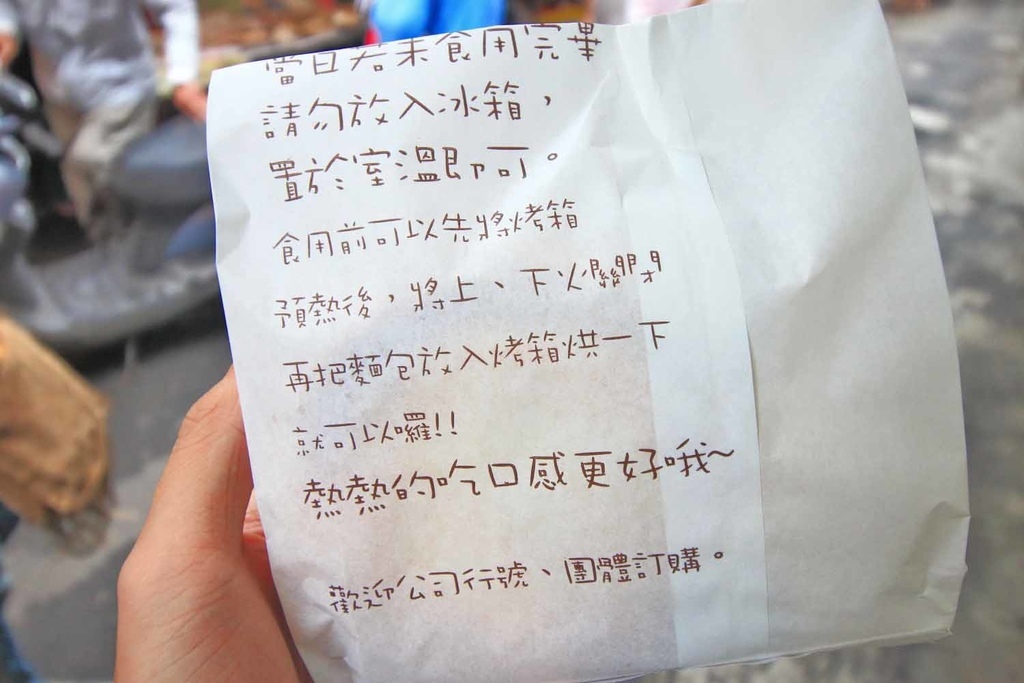 當日若未食用完畢
請勿放入冰箱，
置於室溫即可。
食用前可以先將烤箱
預熱後，將上、下火關閉
再把麵包放入烤箱烘一下
就可以囉!!
熱熱的吃口感更好哦~
歡迎公司行號、團體訂購。